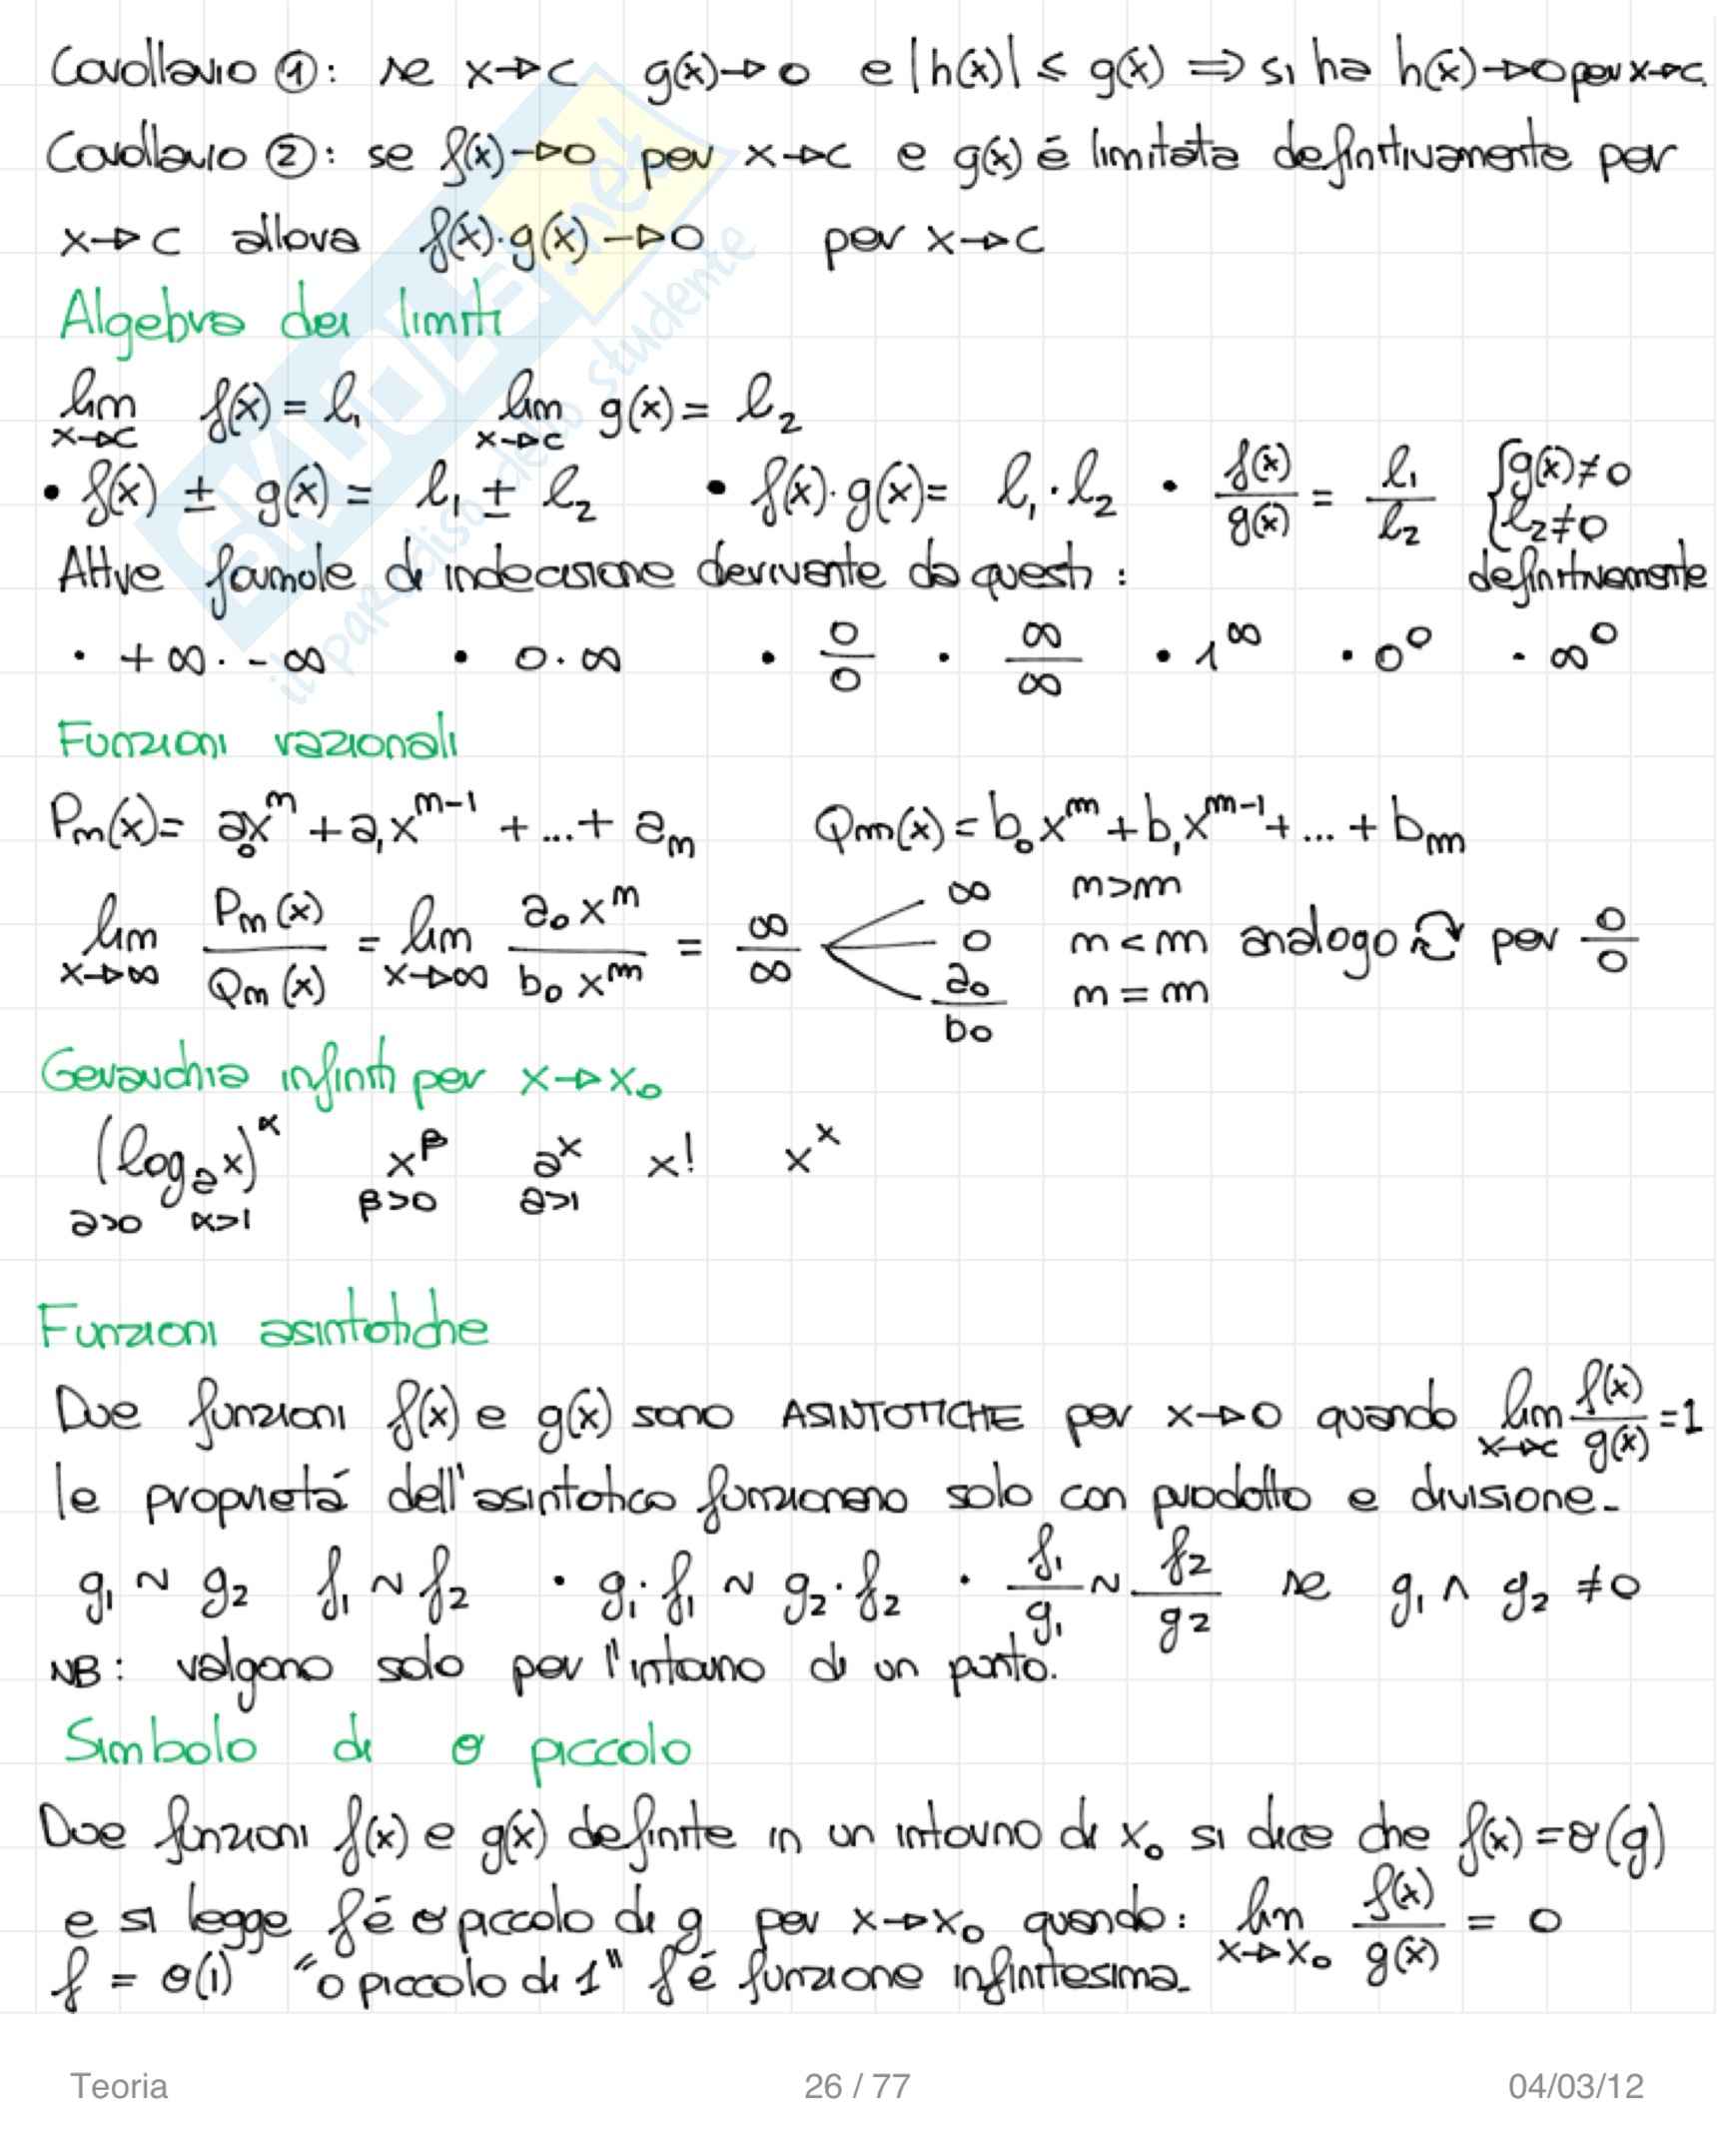 Corollario ①: se x→c g(x)→0 e |h(x)| ≤ g(x) ⇒ si ha h(x)→0 per x→c.
Corollario ②: se f(x)→0 per x→c e g(x) é limitata definitivamente per
x→c allora f(x)·g(x)→0 per x→c
Algebra dei limiti
lim x→c f(x) = l₁ lim x→c g(x) = l₂
• f(x) ± g(x) = l₁ ± l₂ • f(x)·g(x) = l₁·l₂ • f(x)/g(x) = l₁/l₂ { g(x)≠0 l₂≠0
Altre formole di indecisione derivante da questi: definitivamente
• +∞·-∞ • 0·∞ • 0/0 • ∞/∞ • 1^∞ • 0⁰ • ∞⁰
Funzioni razionali
Pn(x) = a₀xⁿ + a₁xⁿ⁻¹ + ... + an Qm(x) = b₀x^m + b₁x^(m-1) + ... + bm
lim x→∞ Pn(x)/Qm(x) = lim x→∞ a₀xⁿ/b₀x^m = ∞/∞ < ∞ n>m
0 n<m analogo per 0/0
a₀/b₀ n=m
Gerarchia infiniti per x→x₀
(logₐx)^α x^β aˣ x! xˣ
a>0 α>1 β>0 a>1
Funzioni asintotiche
Due funzioni f(x) e g(x) sono ASINTOTICHE per x→0 quando lim x→c f(x)/g(x) = 1
le proprietá dell'asintotico funzionano solo con prodotto e divisione.
g₁ ~ g₂ f₁ ~ f₂ • g₁·f₁ ~ g₂·f₂ • f₁/g₁ ~ f₂/g₂ se g₁ ∧ g₂ ≠ 0
NB: valgono solo per l'intorno di un punto.
Simbolo di o piccolo
Due funzioni f(x) e g(x) definite in un intorno di x₀ si dice che f(x) = o(g)
e si legge f é o piccolo di g per x→x₀ quando: lim x→x₀ f(x)/g(x) = 0
f = o(1) "o piccolo di 1" f é funzione infinitesima.
SKUOLA.net
il paradiso dello studente
Teoria 26 / 77 04/03/12